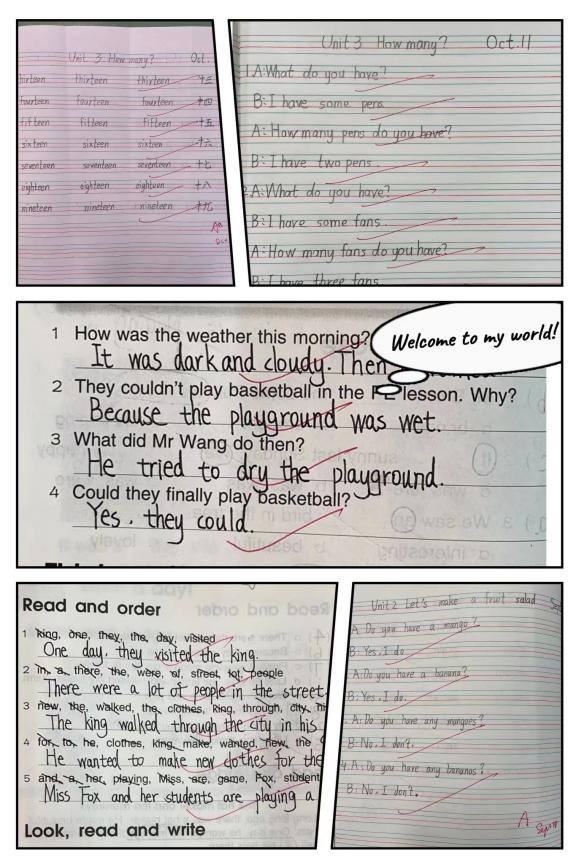 Unit 3 How many? Oct.
thirteen thirteen thirteen 十三
fourteen fourteen fourteen 十四
fifteen fifteen fifteen 十五
sixteen sixteen sixteen 十六
seventeen seventeen seventeen 十七
eighteen eighteen eighteen 十八
nineteen nineteen nineteen 十九
Unit 3 How many? Oct.11
1.A:What do you have?
B:I have some pens.
A:How many pens do you have?
B:I have two pens.
2.A:What do you have?
B:I have some fans.
A:How many fans do you have?
B:I have three fans.
1 How was the weather this morning?
It was dark and cloudy. Then
Welcome to my world!
2 They couldn't play basketball in the PE lesson. Why?
Because the playground was wet.
3 What did Mr Wang do then?
He tried to dry the playground.
4 Could they finally play basketball?
Yes, they could.
Read and order
1 king, one, they, the, day, visited
One day, they visited the king.
2 in, a, there, the, were, of, street, lot, people
There were a lot of people in the street
3 new, the, walked, the, clothes, king, through, city, hi
The king walked through the city in his
4 for, to, he, clothes, king, make, wanted, new, the
He wanted to make new clothes for the
5 and, a, her, playing, Miss, are, game, Fox, student
Miss Fox and her students are playing a
Look, read and write
Unit 2 Let's make a fruit salad Sep
A: Do you have a mango?
B: Yes, I do.
A: Do you have a banana?
B: Yes, I do.
A: Do you have any mangoes?
B: No, I don't.
4.A: Do you have any bananas?
B: No, I don't.
A